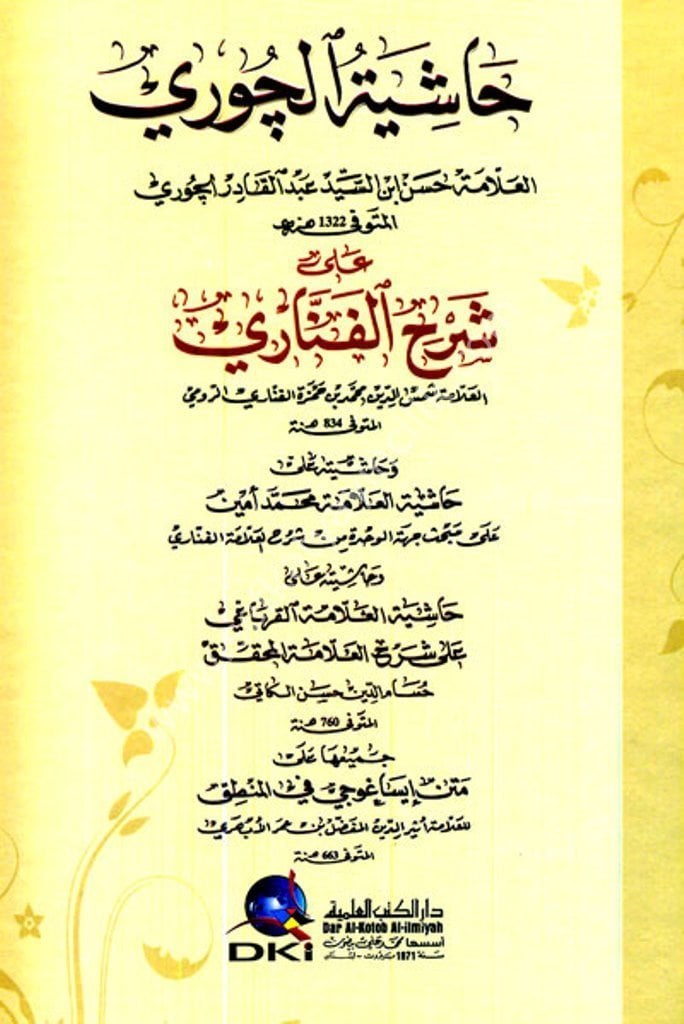 حَاشِيَةُ ٱلچُوري
العَلّامَة حَسَن ابن السَّيِّد عَبْد القَادِر الچُوري
المتَوفى 1322 هـنـة
عَلى
شَرْحِ ٱلفَنَّاري
العَلّامة شمس الدّين محمّد بن حَمْزَة الفنَاري الرّومي
المتوفى 834 هـنـة
وَحَاشيَته عَلى
حَاشيَة العَلّامَة محَمَّد أمين
عَلى مَبحَث جهَة الوحْدة من شرْح العَلّامَة الفنَاري
وحَاشيَته عَلى
حَاشيَة العَلّامَة القربَاغي
عَلى شَرْح العَلّامَة المحَقق
حسَام الدّين حسَن الكَاتي
المتوفى 760 هـنـة
جَميعهَا عَلى
مَتن إيسَاغوجي في المَنْطِق
للعَلّامة أثير الدّين المفَضّل بن عمَر الأبْهَري
المتوفى 663 هـنـة
دار الكتب العلمية
Dar Al-Kotob Al-ilmiyah
DKi
أسسها محمد علي بيضون
سنة 1971 بيروت - لبنان